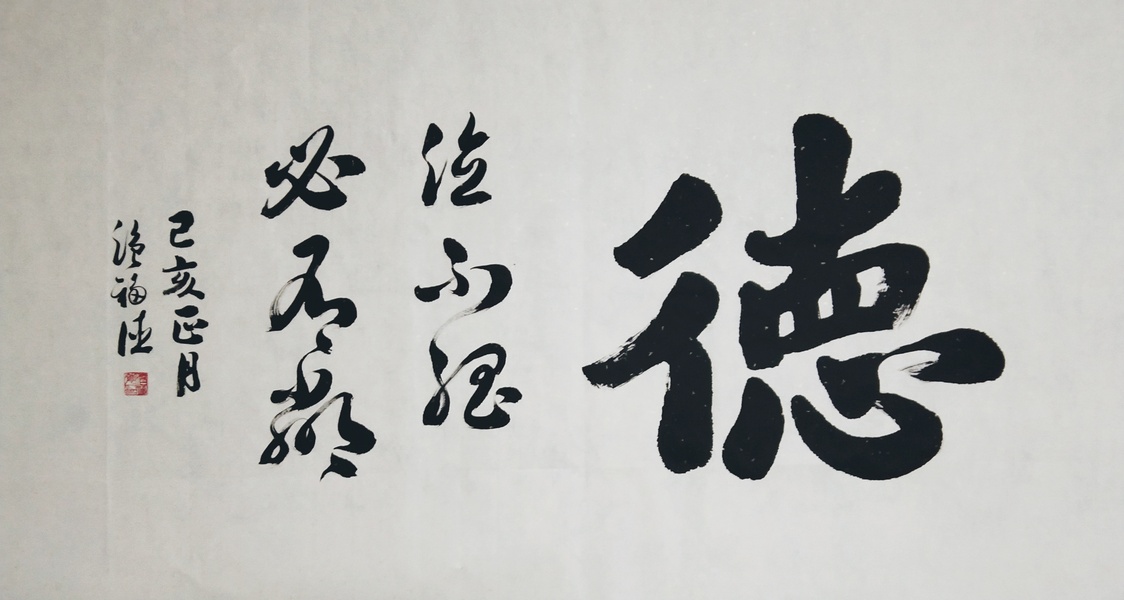 德
德不孤
必有鄰
己亥正月
福德